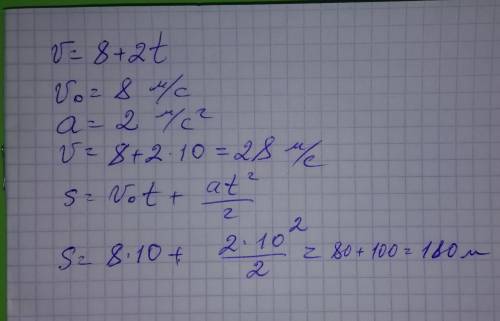 v = 8 + 2t
v₀ = 8 м/с
a = 2 м/с²
v = 8 + 2 · 10 = 28 м/с
s = v₀t + at²/2
s = 8 · 10 + 2 · 10²/2 = 80 + 100 = 180 м